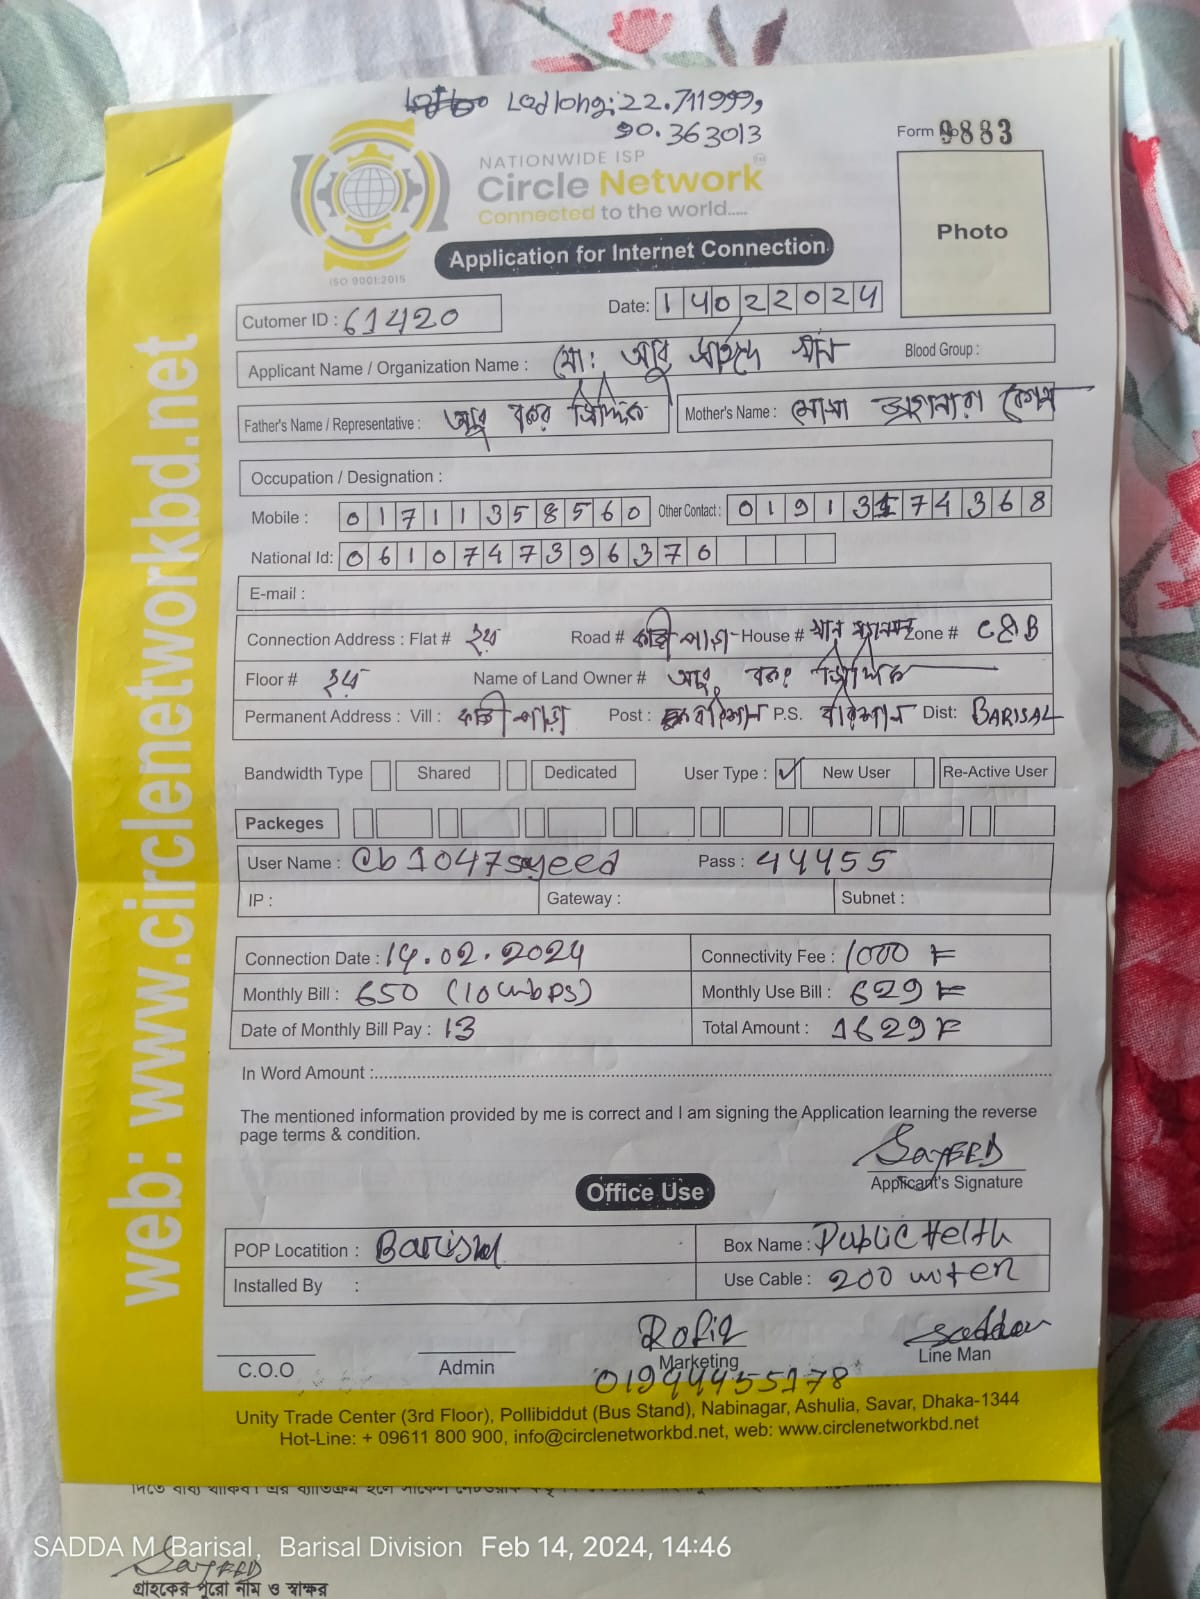 Ladlong: 22.711999,
90.363013
Form No 9883
NATIONWIDE ISP
Circle Network
Connected to the world.....
ISO 9001:2015
Photo
Application for Internet Connection
Cutomer ID : 61420
Date: 14022024
Applicant Name / Organization Name : মো: আবু সাইদ খান Blood Group :
Father's Name / Representative : আবু বকর সিদ্দিক Mother's Name : মোসা জাহানারা বেগম
Occupation / Designation :
Mobile : 01711358560 Other Contact : 01913174368
National Id: 0610747396370
E-mail :
Connection Address : Flat # ২য় Road # কাজী পাড়া House # খান Zone # C&B
Floor # ২য় Name of Land Owner # আবু বকর সিদ্দিক
Permanent Address : Vill : কাজী পাড়া Post : বরিশাল P.S. বরিশাল Dist: BARISAL
Bandwidth Type Shared Dedicated User Type : ✓ New User Re-Active User
Packeges
User Name : Cb1047sayeed Pass : 44455
IP : Gateway : Subnet :
Connection Date : 14.02.2024 Connectivity Fee : 1000
Monthly Bill : 650 (10 mbps) Monthly Use Bill : 629
Date of Monthly Bill Pay : 13 Total Amount : 1629
In Word Amount :
The mentioned information provided by me is correct and I am signing the Application learning the reverse
page terms & condition.
SAYEED
Applicant's Signature
Office Use
POP Locatition : Barisal Box Name : Public Helth
Installed By : Use Cable : 200 miter
Rofiq saddam
C.O.O Admin Marketing Line Man
01944455178
Unity Trade Center (3rd Floor), Pollibiddut (Bus Stand), Nabinagar, Ashulia, Savar, Dhaka-1344
Hot-Line: + 09611 800 900, info@circlenetworkbd.net, web: www.circlenetworkbd.net
web: www.circlenetworkbd.net
SADDA M, Barisal, Barisal Division Feb 14, 2024, 14:46
SAYEED
গ্রাহকের পুরো নাম ও স্বাক্ষর